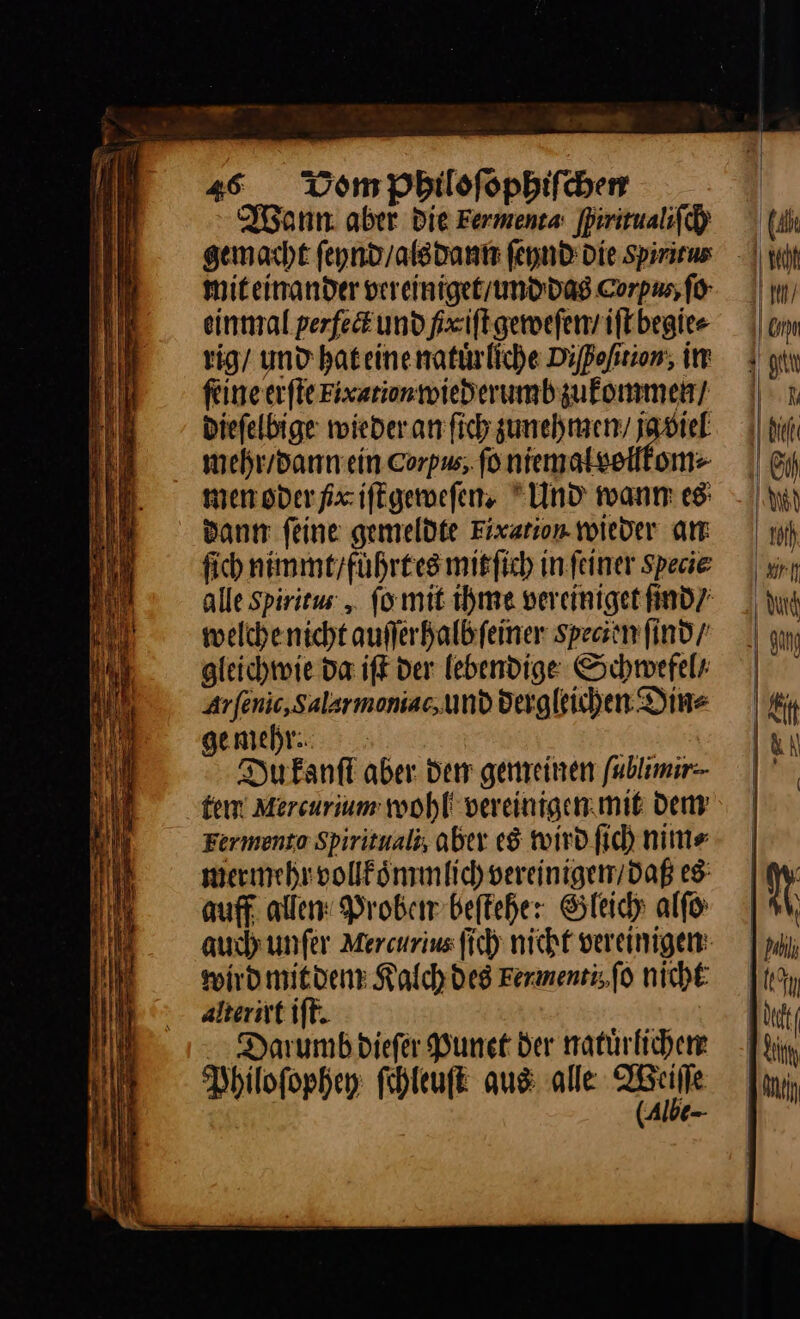 46 Vom Philoſophiſchen
Wann aber die Fermenta ſpiritualiſch
gemacht ſeynd/alsdann ſeynd die Spiritus
mit einander vereiniget/und das Corpus, ſo
einmal perfect und fix iſt geweſen/ iſt begie⸗
rig/ und hat eine natuͤrliche Diſpoſition, in
ſeine erſte Fixation wiederumb zukommen/
dieſelbige wieder an ſich zunehmen/ ja viel
mehr/dann ein Corpus, ſo niemal vollkom⸗
men oder fix iſt geweſen. Und wann es
dann ſeine gemeldte Fixation wieder an
ſich nimmt/fuͤhrt es mit ſich in ſeiner Specie
alle Spiritus, ſo mit ihme vereiniget ſind/
welche nicht auſſerhalb ſeiner Specien ſind/
gleichwie da iſt der lebendige Schwefel/
Arſenic, Salarmoniac, und dergleichen Din⸗
ge mehr.
Du kanſt aber den gemeinen ſublimir-
ten Mercurium wohl vereinigen mit dem
Fermento Spirituali, aber es wird ſich nim⸗
mermehr vollkoͤmmlich vereinigen/daß es
auff allen Proben beſtehe: Gleich alſo
auch unſer Mercurius ſich nicht vereinigen
wird mit dem Kalch des Fermenti, ſo nicht
alterirt iſt.
Darumb dieſer Punct der natuͤrlichen
Philoſophey ſchleuſt aus alle Weiſſe
(Albe-